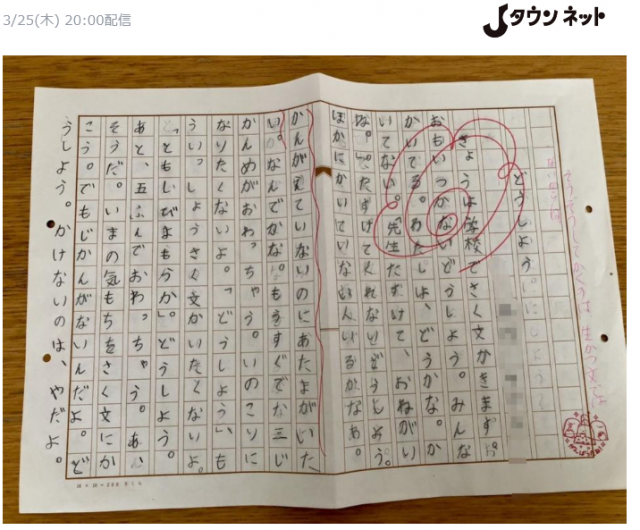 3/25(木) 20:00配信
Jタウンネット
どうしよう。
きょうは学校でさく文かきます。
おもいつかないどうしよう。みんな
かいてる。わたしは、どうかな。か
いてない。「先生たすけて、おねがい
な。」たすけてくれないどうしよう。
ほかにかいていない人いるかなぁ。
かんがえていないのにあたまがいた
い。なんでかな。もうすぐで三じ
かんめがおわっちゃう。いのこりに
なりたくないよ。「どうしよう」も
ういっしょうさく文かいたくないよ。
どうしよう。
あと、五ふんでおわっちゃう。あ、
そうだ。いまの気もちをさく文にか
こう。でもじかんがないんだよ。ど
うしよう。かけないのは、やだよ。